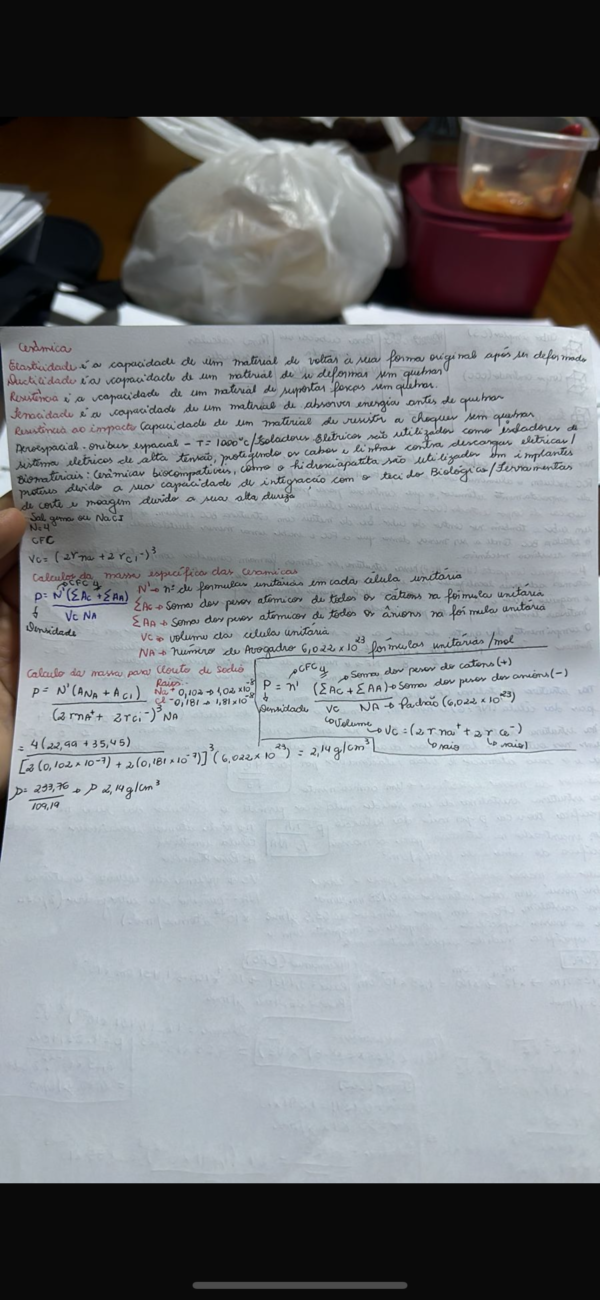 Cerâmica
Elasticidade é a capacidade de um material de voltar à sua forma original após ser deformado
Ducticidade é a capacidade de um material de se deformar sem quebrar
Resistência é a capacidade de um material de suportar forças sem quebrar.
Tenacidade é a capacidade de um material de absorver energia antes de quebrar
Resistência ao impacto Capacidade de um material de resistir a choques sem quebrar
Aeroespacial - ônibus espacial - T = 1000°C / Isoladores Eletricos são utilizados como isoladores de
sistema eletricos de alta tensão, protegendo os cabos e linhas contra descargas eletricas /
Biomateriais: Cerâmicas biocompativeis, como a hidroxiapatita são utilizador em implantes
devido a sua capacidade de integração com o tecido Biológico / Ferramentas
de corte e moagem devido a sua alta dureza
Sal gema ou NaCl
N=4
CFC
Vc = (2rna + 2rcl-)³
Calculos da massa especifica das ceramicas
CFC 4
P = N'(ΣAc + ΣAA) / Vc NA
Densidade
N' → nº de formulas unitárias em cada célula unitária
ΣAc → Soma dos pesos atômicos de todos os cátions na fórmula unitária
ΣAA → Soma dos pesos atomicos de todos os ânions na fórmula unitária
Vc → volume da célula unitaria
NA → número de Avogadro 6,022 x 10²³ fórmulas unitárias/mol
Calculo da massa para Cloreto de Sodio
P = N'(ANA + ACl) / (2rna+ + 2rcl-)³ NA
Raios:
Na+ 0,102 → 1,02 x 10⁻⁸
Cl- 0,181 → 1,81 x 10⁻⁸
CFC 4
Soma dos pesos do cations (+)
P = n' (ΣAc + ΣAA) → Soma dos pesos dos anions (-)
Densidade
Vc NA → Padrão (6,022 x 10²³)
Volume
Vc = (2rna+ + 2rcl-)
raio raio
= 4(22,99 + 35,45) / [2(0,102 x 10⁻⁷) + 2(0,181 x 10⁻⁷)]³ (6,022 x 10²³) = 2,14 g/cm³
P = 233,76 / 109,19 → P 2,14 g/cm³